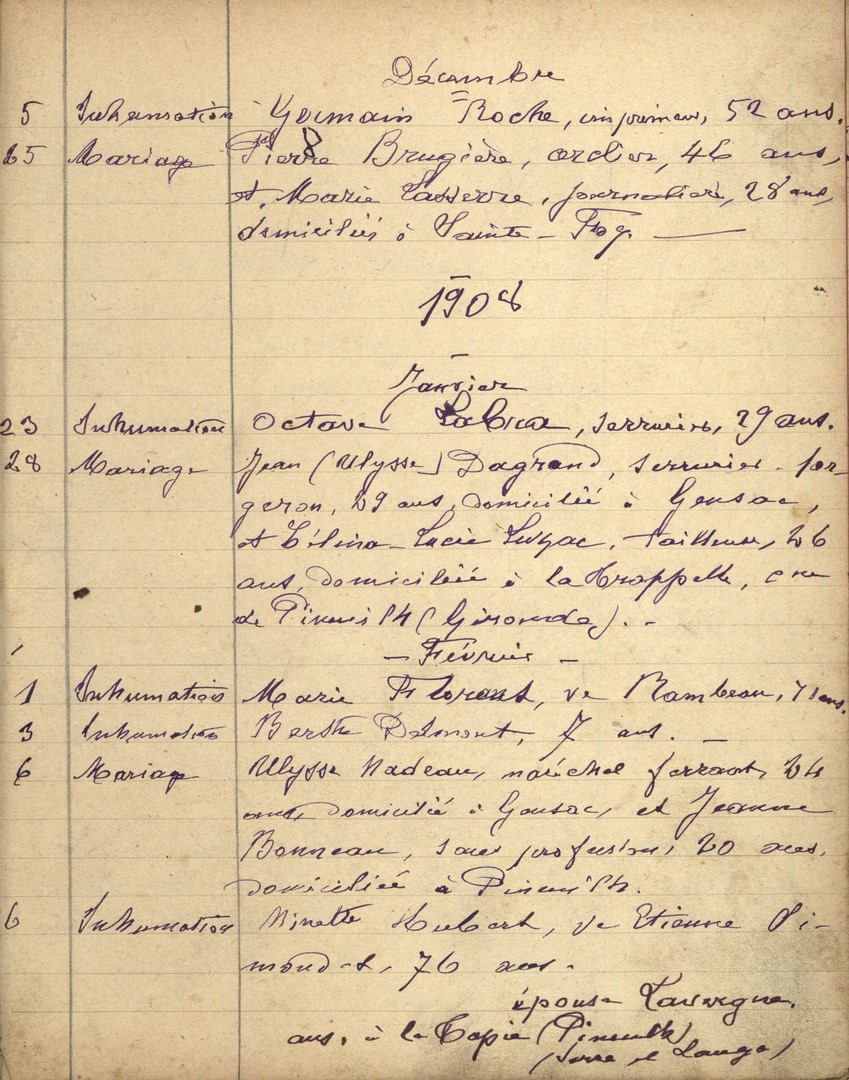 Décembre
5 Inhumation Germain Roche, imprimeur, 52 ans.
25 Mariage Pierre Brugière, cordier, 46 ans,
et Marie Lasserre, journalière, 28 ans,
domiciliés à Sainte-Foy
1908
Janvier
23 Inhumation Octave, serrurier, 29 ans.
28 Mariage Jean (Ulysse) Dagrand, serrurier-for-
geron, 29 ans, domicilié à Gensac,
et Célina-Lucie Luzac, tailleuse, 26
ans, domiciliée à la Trappelle, cne
de (Gironde). -
- Février -
1 Inhumation Marie Florent, ve Rambeau, 71 ans.
3 Inhumation Berthe Delmont, 7 ans. -
6 Mariage Ulysse Nadeau, maréchal ferrant, 24
ans, domicilié à Gensac, et Jeanne
Bonneau, sans profession, 20 ans,
domiciliée à
6 Inhumation Ninette Hubert, ve Etienne Pi-
mondet, 76 ans.
épouse Lavergne.
ans. à la Tapie